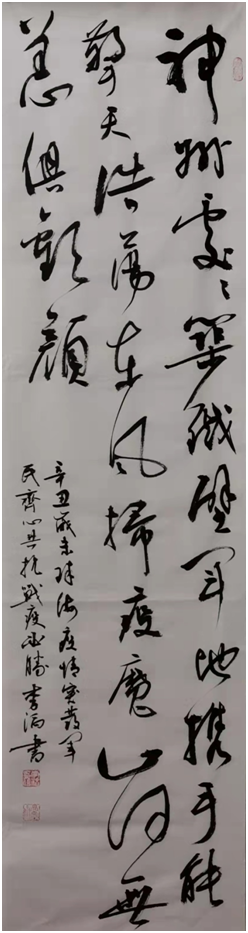 神州處々築鐵壁軍地携手能
擎天浩蕩東風掃疫魔山河無
恙俱歡顔
辛丑歲末珠海疫情突發軍
民齊心共抗戰疫必勝李
書